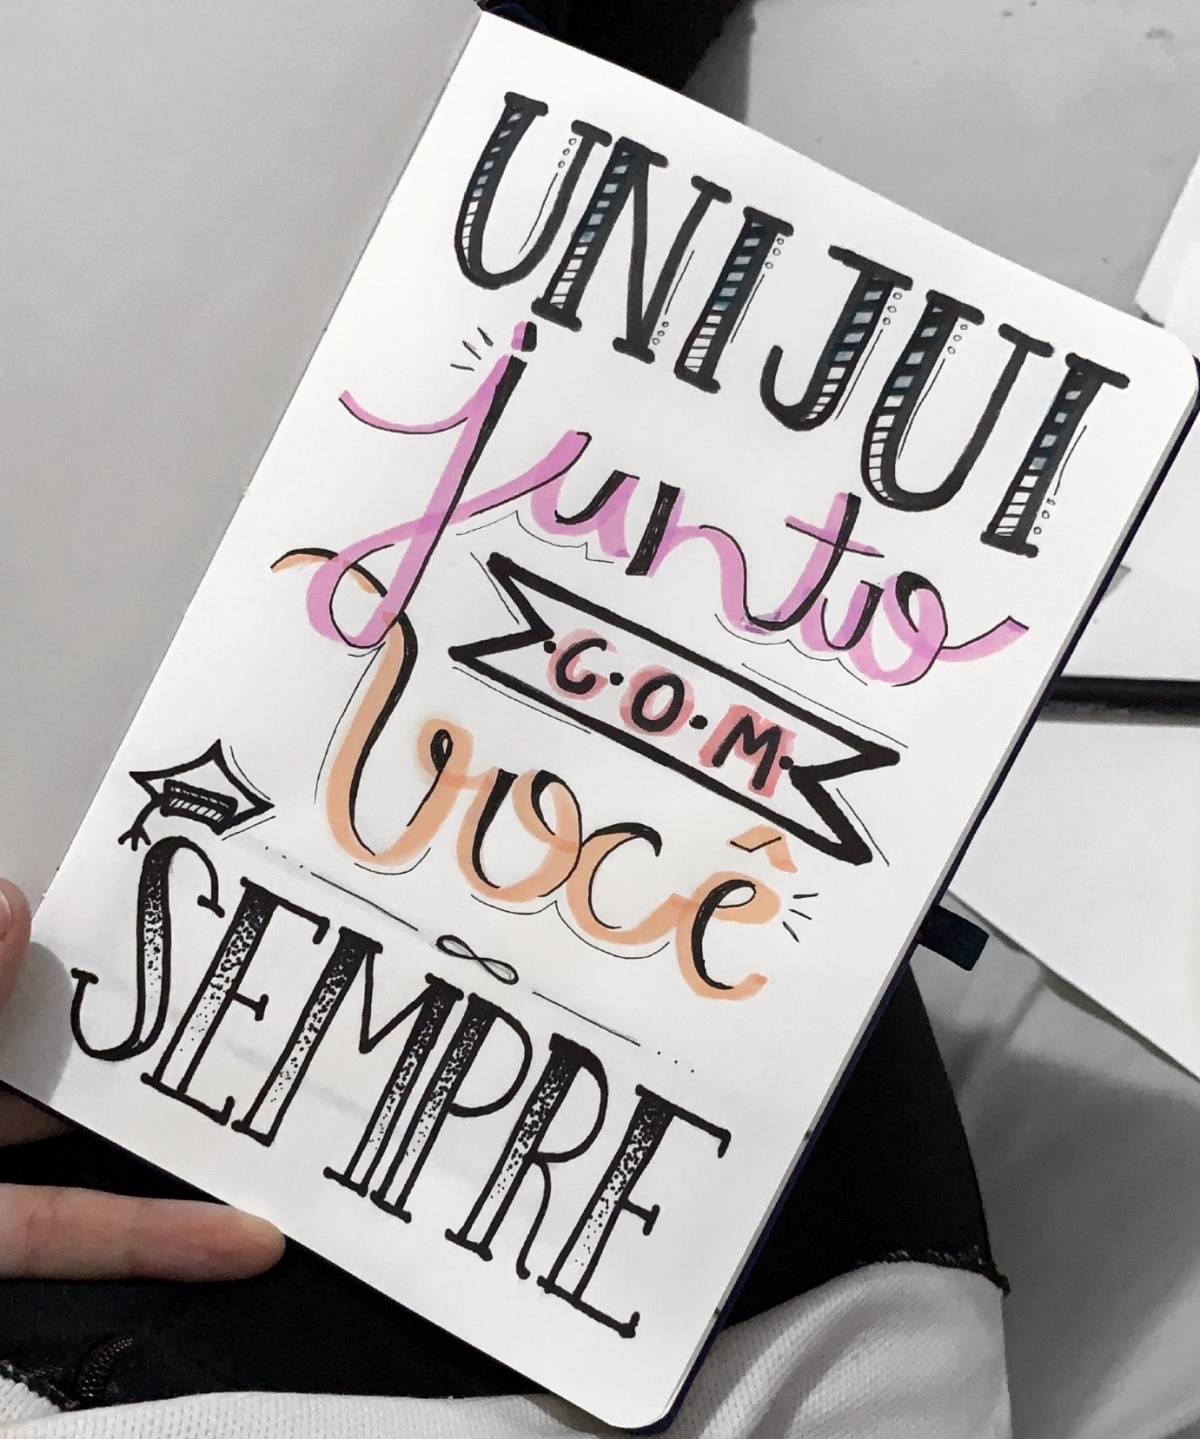 UNIJUI
junto
·C·O·M·
você
SEMPRE